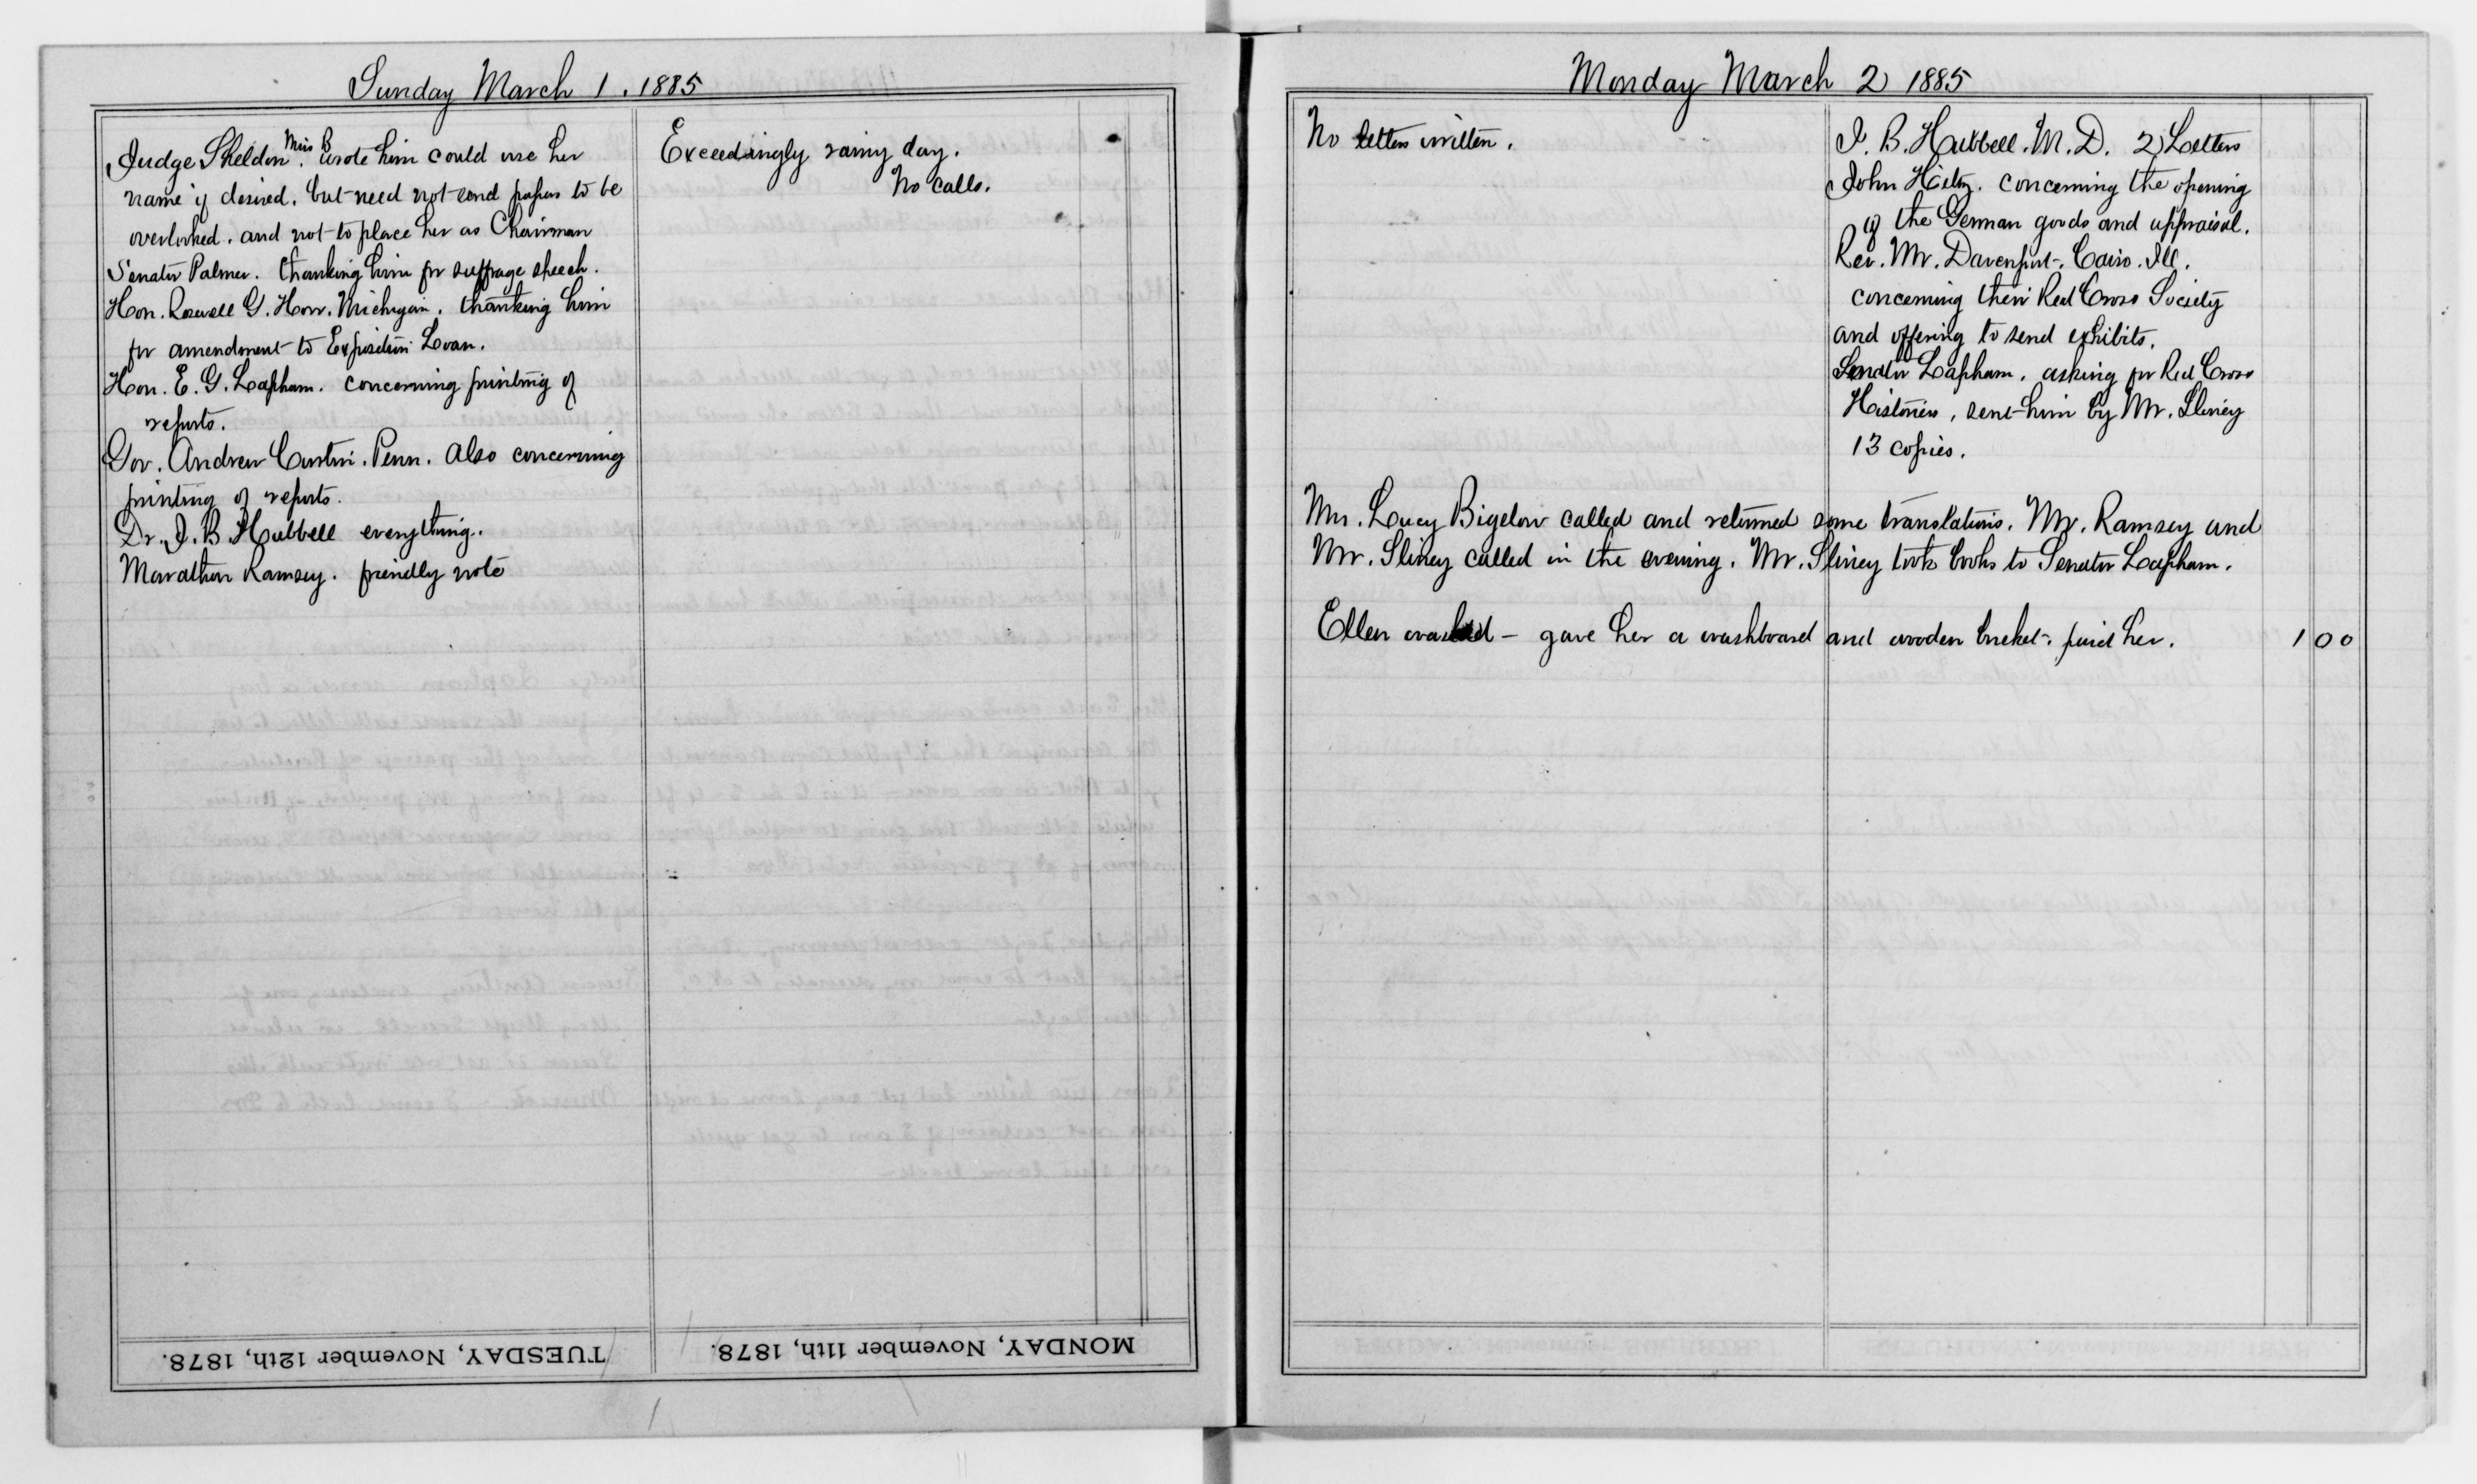 Sunday March 1. 1885
Judge Sheldon. Miss B wrote him could use her
name if desired, but need not send papers to be
overlooked, and not to place her as Chairman
Senator Palmer. thanking him for suffrage speech.
Hon. Roswell G. Horr. Michigan. thanking him
for amendment to Exposition Loan.
Hon. E. G. Lapham. concerning printing of
reports.
Gov. Andrew Curtin. Penn. also concerning
printing of reports.
Dr. J. B. Hubbell everything.
Marathon Ramsey. friendly note
Exceedingly rainy day.
No calls.
MONDAY, November 11th, 1878.
TUESDAY, November 12th, 1878.
Monday March 2 1885
No letters written.
J. B. Hubbell. M. D. 2 Letters
John Hitz. concerning the opening
of the German goods and appraisal.
Rev. Mr. Davenport. Cairo. Ill.
concerning their Red Cross Society
and offering to send exhibits.
Senator Lapham. asking for Red Cross
Histories, sent him by Mr. Sliney
13 copies.
Mrs. Lucy Bigelow called and returned some translations. Mr. Ramsey and
Mr. Sliney called in the evening. Mr. Sliney took books to Senator Lapham.
Ellen washed – gave her a washboard and wooden bucket. paid her. 1 00